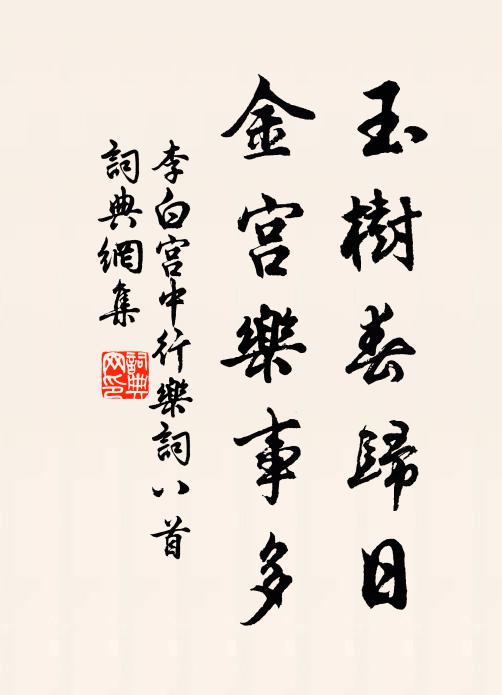 玉樹春歸日
金宮樂事多
李白宮中行樂詞八首
詞典網集
詞典网印